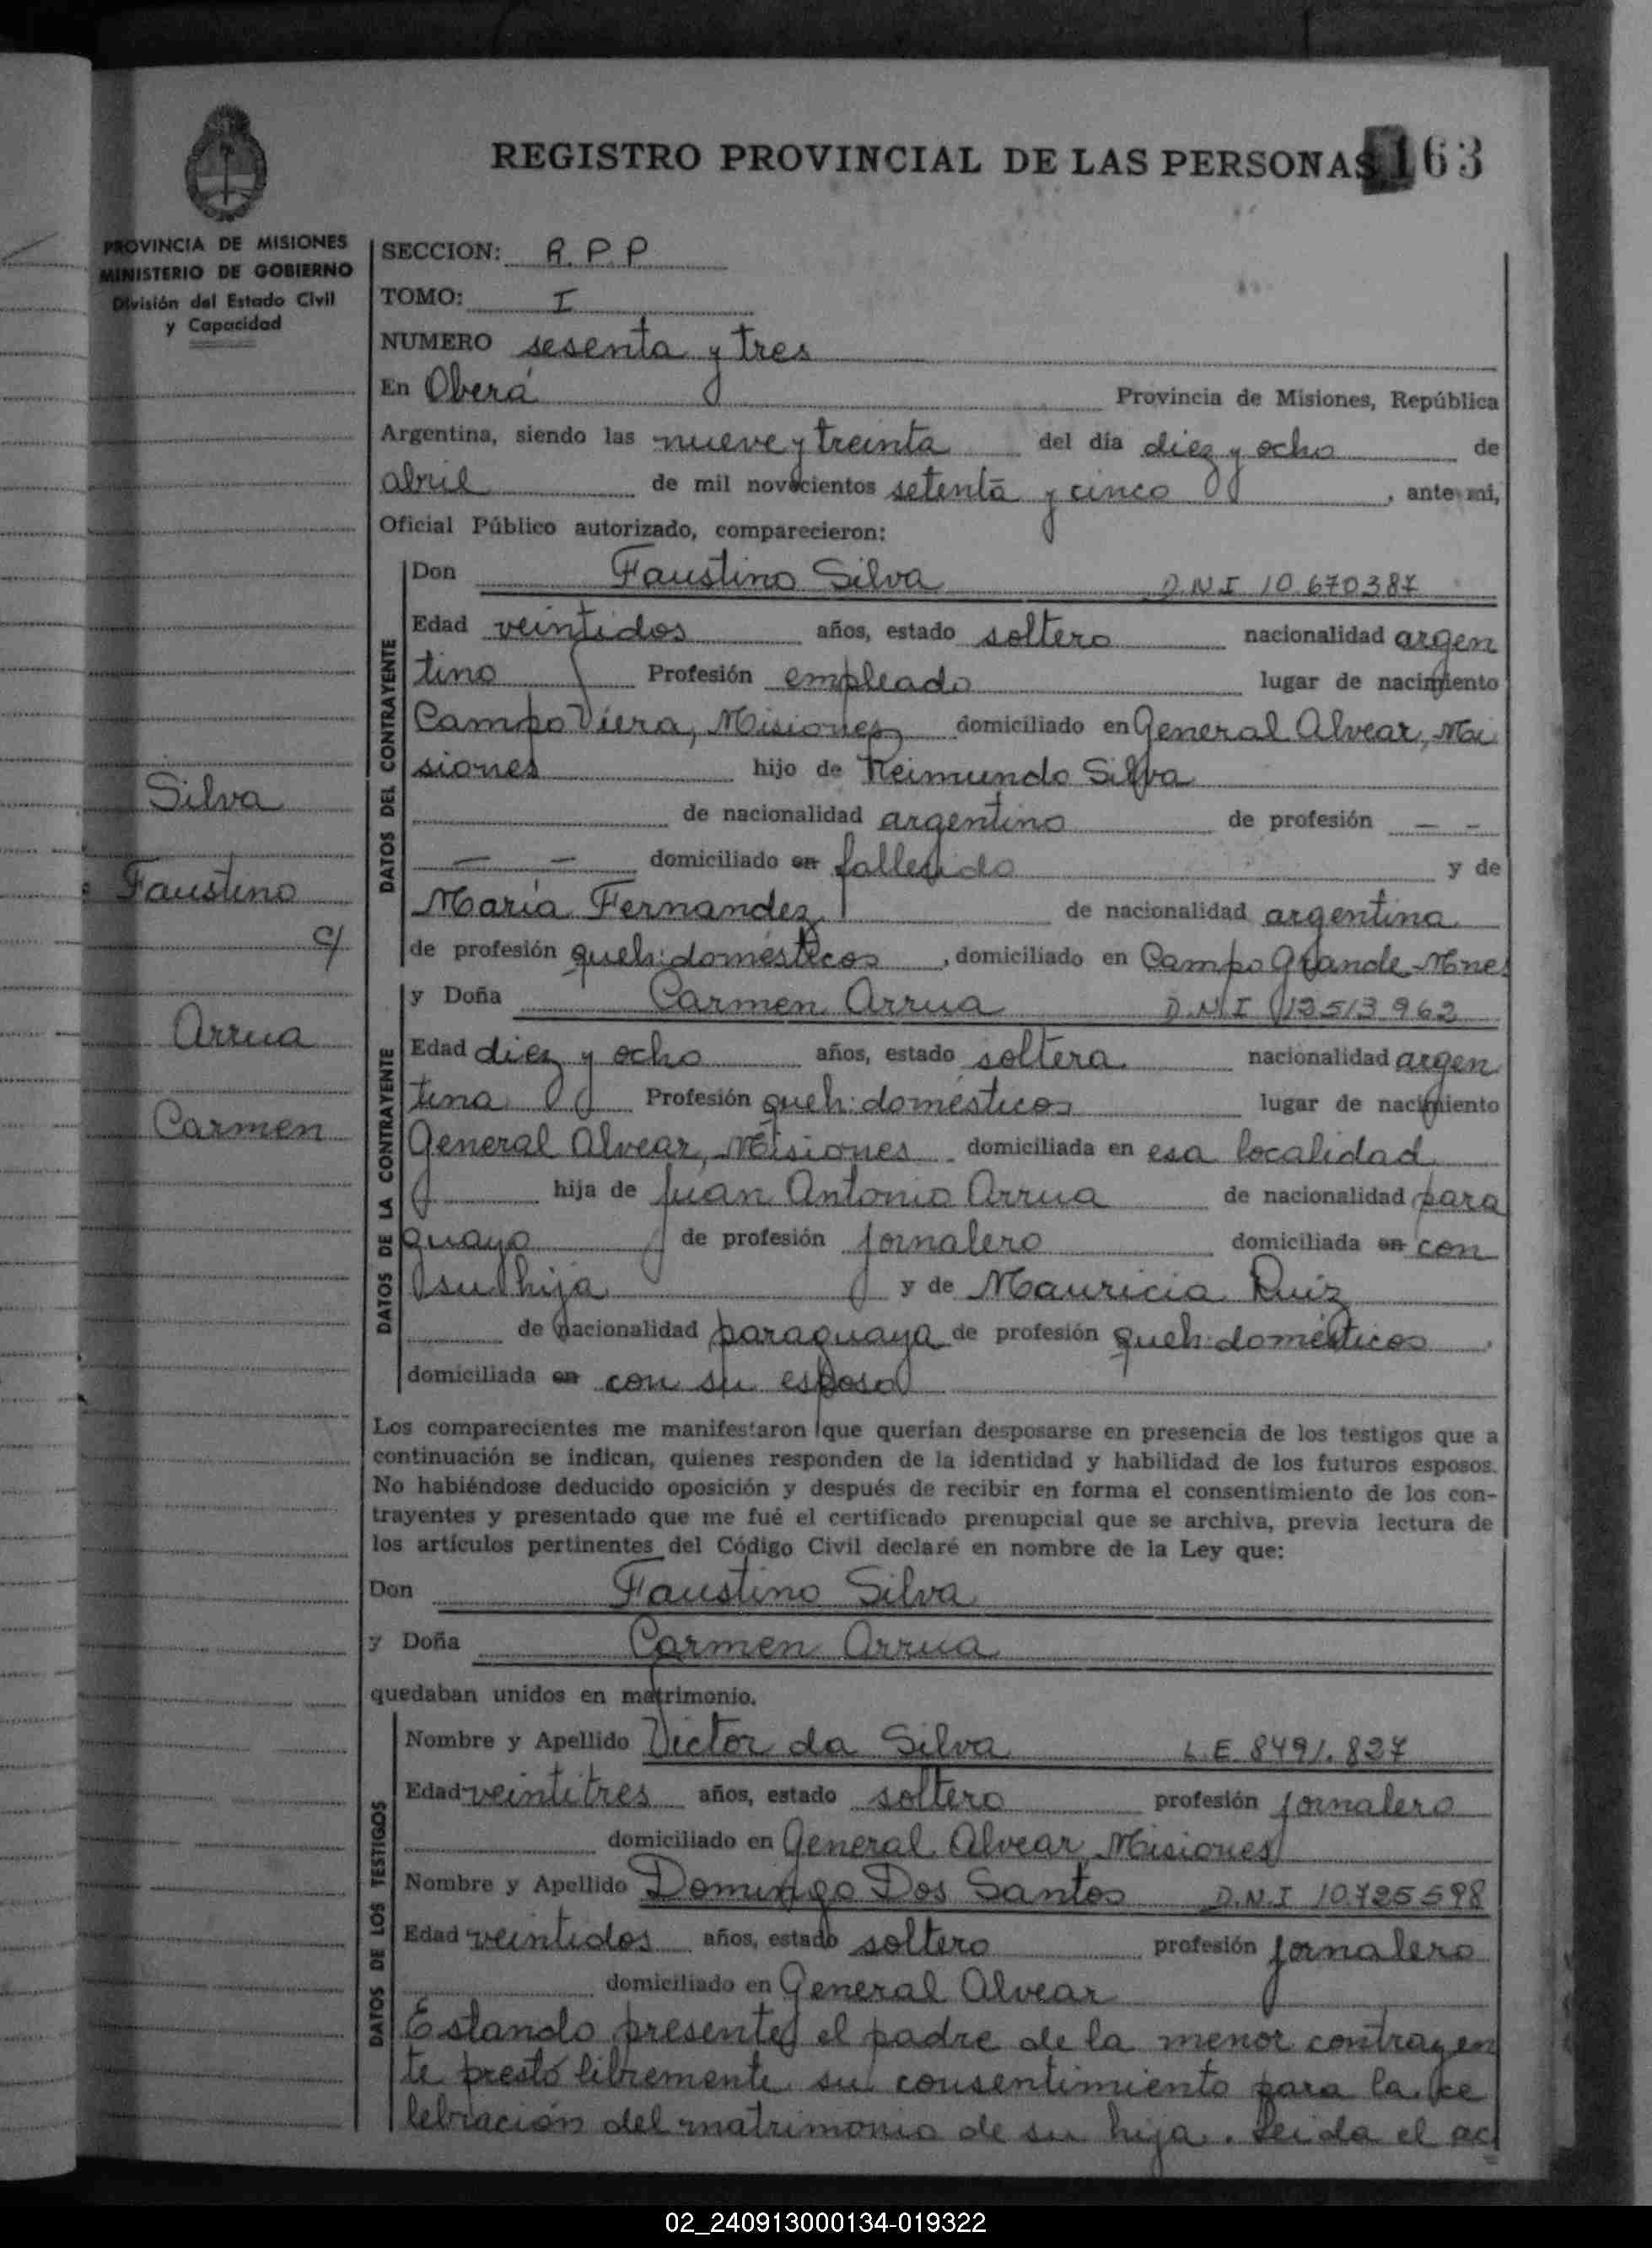 REGISTRO PROVINCIAL DE LAS PERSONAS 163
PROVINCIA DE MISIONES
MINISTERIO DE GOBIERNO
División del Estado Civil
y Capacidad
Silva
Faustino
c/
Arrua
Carmen
SECCION: R.P.P
TOMO: I
NUMERO sesenta y tres
En Oberá Provincia de Misiones, República
Argentina, siendo las nueve y treinta del día diez y ocho de
abril de mil novecientos setenta y cinco, ante mi,
Oficial Público autorizado, comparecieron:
DATOS DEL CONTRAYENTE
Don Faustino Silva D.N.I 10.670387
Edad veintidos años, estado soltero nacionalidad argen
tino Profesión empleado lugar de nacimiento
Campo Viera, Misiones domiciliado en General Alvear, Mi
siones hijo de Reimundo Silva
de nacionalidad argentino de profesión — —
— — domiciliado en fallecido y de
María Fernandez de nacionalidad argentina
de profesión queh: domésticos, domiciliado en Campo Grande-Mnes
DATOS DE LA CONTRAYENTE
y Doña Carmen Arrua D.N.I 12513962
Edad diez y ocho años, estado soltera nacionalidad argen
tina Profesión queh: domésticos lugar de nacimiento
General Alvear, Misiones domiciliada en esa localidad
hija de Juan Antonio Arrua de nacionalidad para
guayo de profesión jornalero domiciliada en con
su hija y de Mauricia Ruiz
de nacionalidad paraguaya de profesión queh: domésticos,
domiciliada en con su esposo
Los comparecientes me manifestaron que querían desposarse en presencia de los testigos que a
continuación se indican, quienes responden de la identidad y habilidad de los futuros esposos.
No habiéndose deducido oposición y después de recibir en forma el consentimiento de los con-
trayentes y presentado que me fué el certificado prenupcial que se archiva, previa lectura de
los artículos pertinentes del Código Civil declaré en nombre de la Ley que:
Don Faustino Silva
y Doña Carmen Arrua
quedaban unidos en matrimonio.
DATOS DE LOS TESTIGOS
Nombre y Apellido Victor da Silva L.E. 8491.827
Edad veintitres años, estado soltero profesión jornalero
domiciliado en General Alvear, Misiones
Nombre y Apellido Domingo Dos Santos D.N.I 10.725.598
Edad veintidos años, estado soltero profesión jornalero
domiciliado en General Alvear
Estando presente el padre de la menor contrayen
te prestó libremente su consentimiento para la ce
lebración del matrimonio de su hija. Leida el ac
02_240913000134-019322